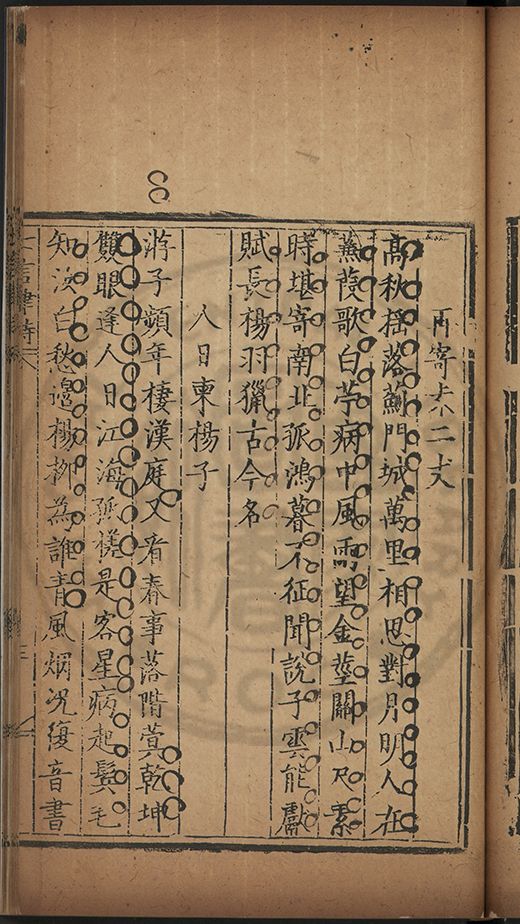 再寄朱二丈
高秋搖落薊門城萬里相思對月明人在
蒹葭歌白苧病中風雨望金莖關山尺素
時堪寄南北孤鴻暮不征聞說子雲能獻
賦長楊羽獵古今名
人日柬楊子
游子頻年棲漢庭又看春事落階蓂乾坤
雙眼逢人日江海孤槎是客星病起鬢毛
知汝白愁邊楊柳為誰青風烟况復音書
七言律詩